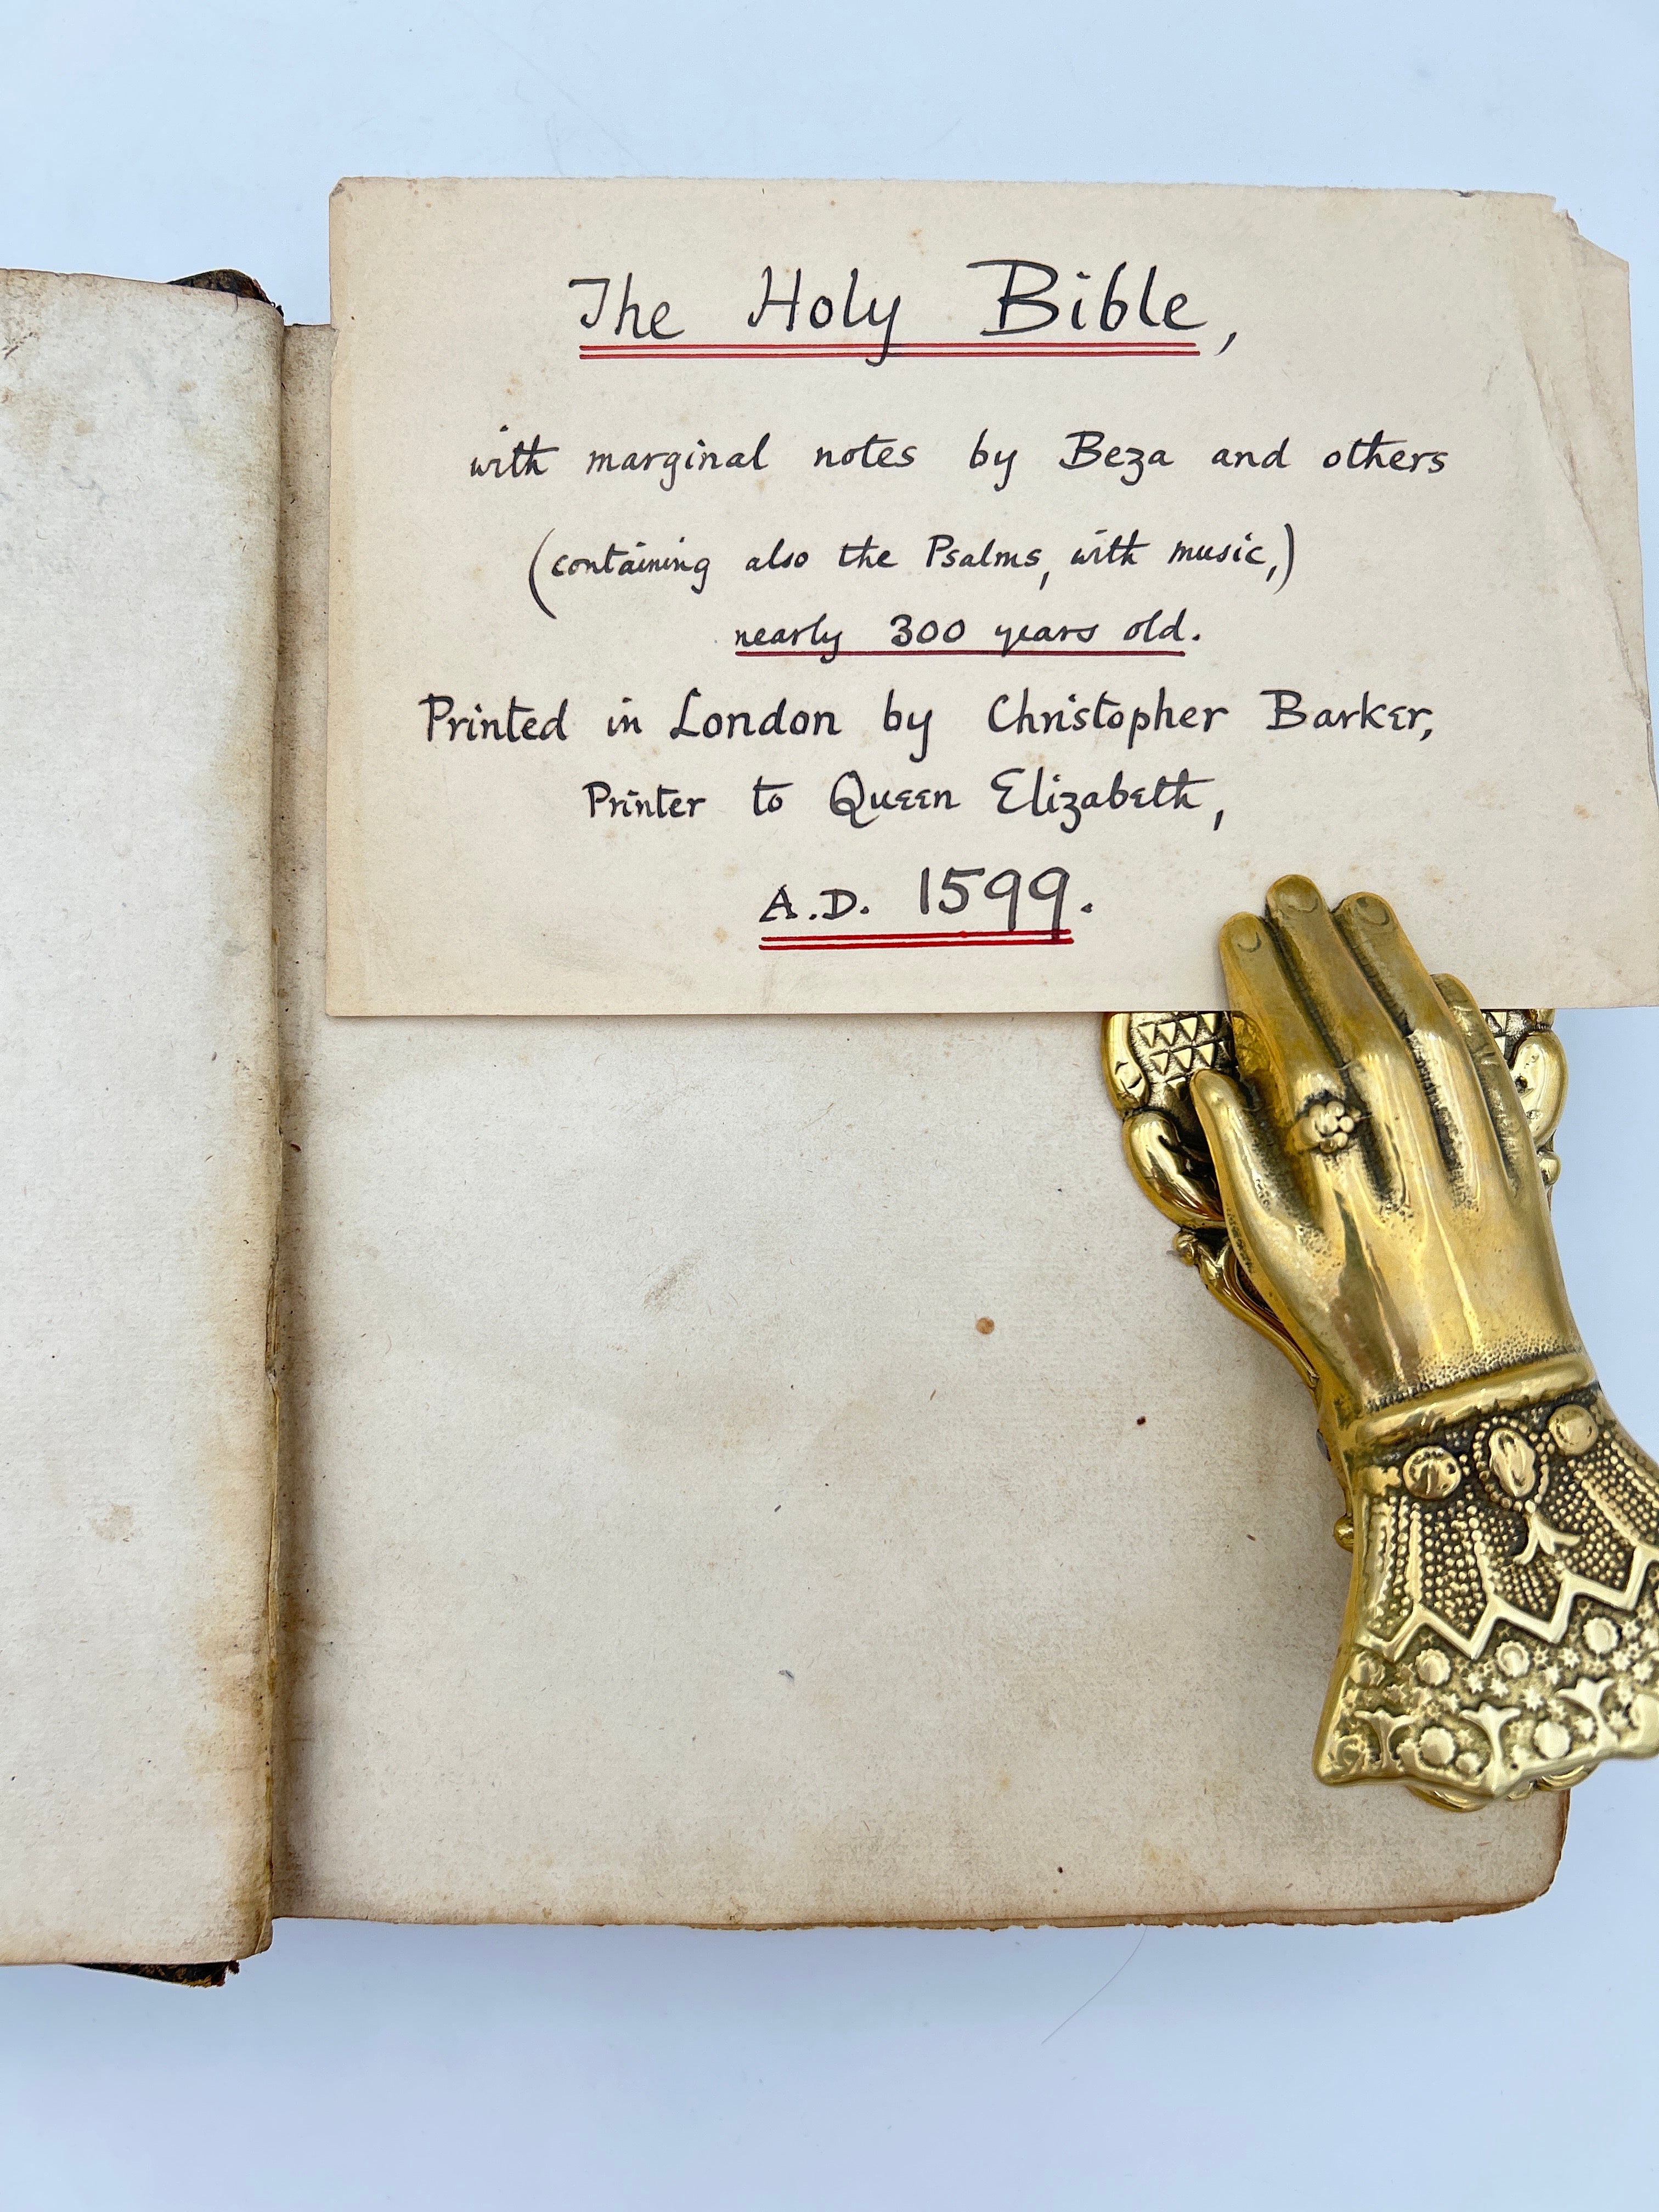 The Holy Bible,
with marginal notes by Beza and others
(containing also the Psalms, with music,)
nearly 300 years old.
Printed in London by Christopher Barker,
Printer to Queen Elizabeth,
A.D. 1599.